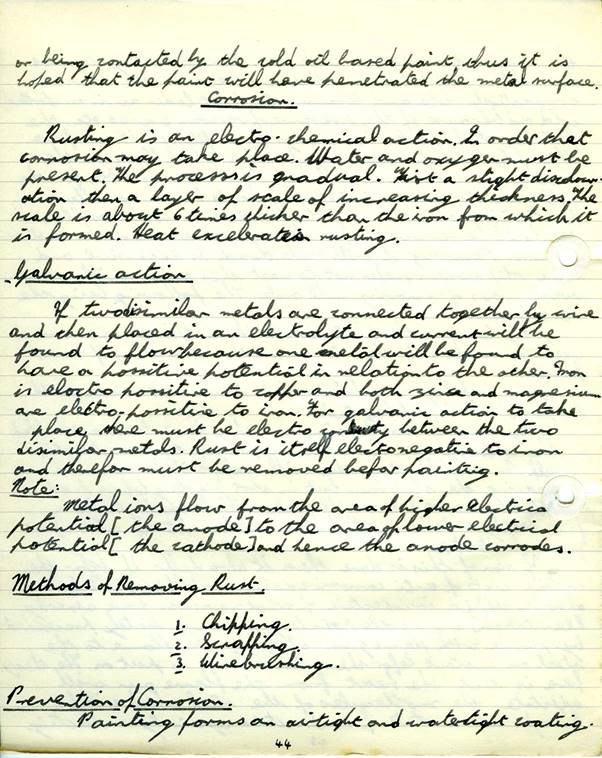 or being contacted by the cold oil based paint, thus it is
hoped that the paint will have penetrated the metal surface.
Corrosion.
Rusting is an electro-chemical action. In order that
corrosion may take place. Water and oxygen must be
present. The process is gradual. First a slight discolour-
ation then a layer of scale of increasing thickness. The
scale is about 6 times thicker than the iron from which it
is formed. Heat excelerates rusting.
Galvanic action
If two disimilar metals are connected together by wire
and then placed in an electrolyte and current will be
found to flow because one metal will be found to
have a possitive potential in relation to the other. Iron
is electro possitive to copper and both zinc and magnesium
are electro-possitive to iron. For galvanic action to take
place, there must be electro between the two
disimilar metals. Rust is itself electonegative to iron
and therefor must be removed befor painting.
Note:
Metal ions flow from the area of higher electrica
potential [the anode] to the area of lower electrical
potential [the cathode] and hence the anode corrodes.
Methods of Removing Rust.
1. Chipping.
2. Scrapping.
3. Wirebrushing.
Prevention of Corrosion.
Painting forms an airtight and watertight coating.
44